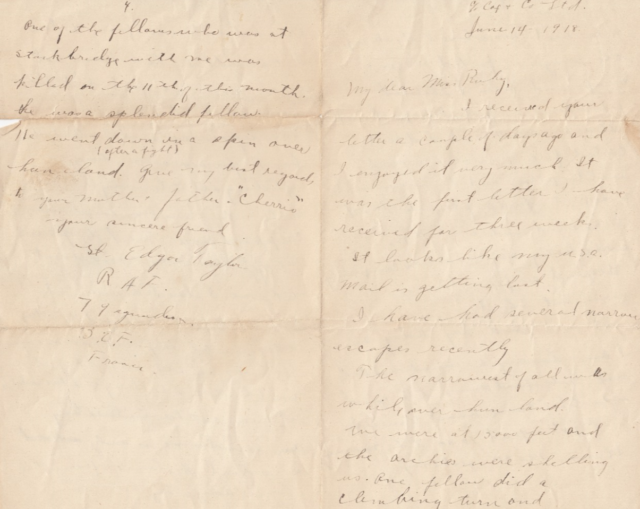 4.
One of the fellows who was at
Stockbridge with me was
killed on the 11th of this month.
He was a splendid fellow.
He went down in a spin over
(after a fight)
hun land. Give my best regards
to your mother & father. "Cherrio"
your sincere friend
Lt. Edgar Taylor
R A F.
79 Squadron,
B.E.F.
France.
& Co - Ltd.
June 14 - 1918.
My dear Miss
I received your
letter a couple of days ago and
I enjoyed it very much. It
was the first letter I have
received for three weeks.
It looks like my U.S.A.
Mail is getting lost.
I have had several narrow
escapes recently
The narrowest of all was
while over hun land.
We were at 15000 feet and
the archies were shelling
us. One fellow did a
climbing turn and